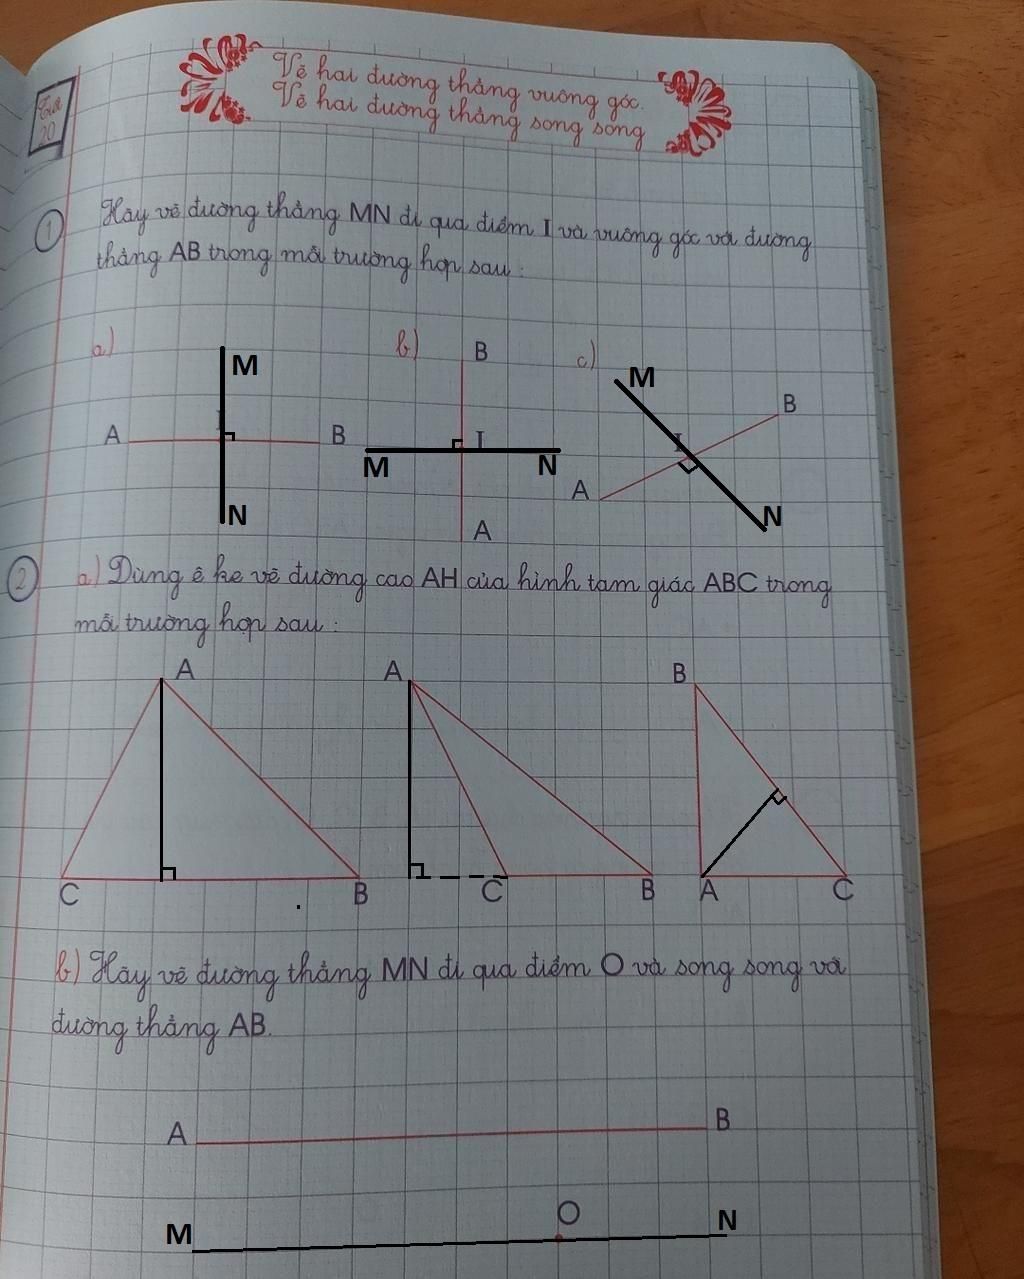 Tiết
20
Vẽ hai đường thẳng vuông góc.
Vẽ hai đường thẳng song song
1 Hãy vẽ đường thẳng MN đi qua điểm I và vuông góc với đường
thẳng AB trong mỗi trường hợp sau :
a) b) c)
M B M
A I B I B
M N A
N A N
2 a) Dùng ê ke vẽ đường cao AH của hình tam giác ABC trong
mỗi trường hợp sau :
A A B
C B C B A C
b) Hãy vẽ đường thẳng MN đi qua điểm O và song song với
đường thẳng AB.
A B
M O N